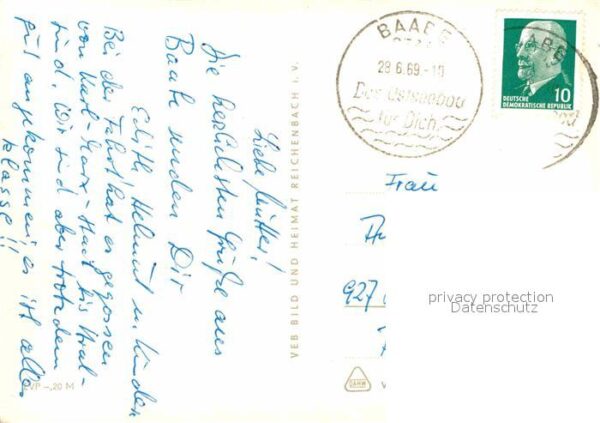 Liebe Mutter!
Die herzlichsten Grüße aus
Baabe senden Dir
Edith Helmut u. Kinder
Bei der Fahrt hat es gegossen
von Karl-Marx-Stadt bis Stral-
sund. Wir sind aber trotzdem
gut angekommen, es ist alles
klasse!!
EVP -,20 M
VEB BILD UND HEIMAT REICHENBACH i. V.
BAABE
28.6.69-10
Das Ostseebad
für Dich
10
DEUTSCHE
DEMOKRATISCHE REPUBLIK
Frau
927
privacy protection
Datenschutz
V